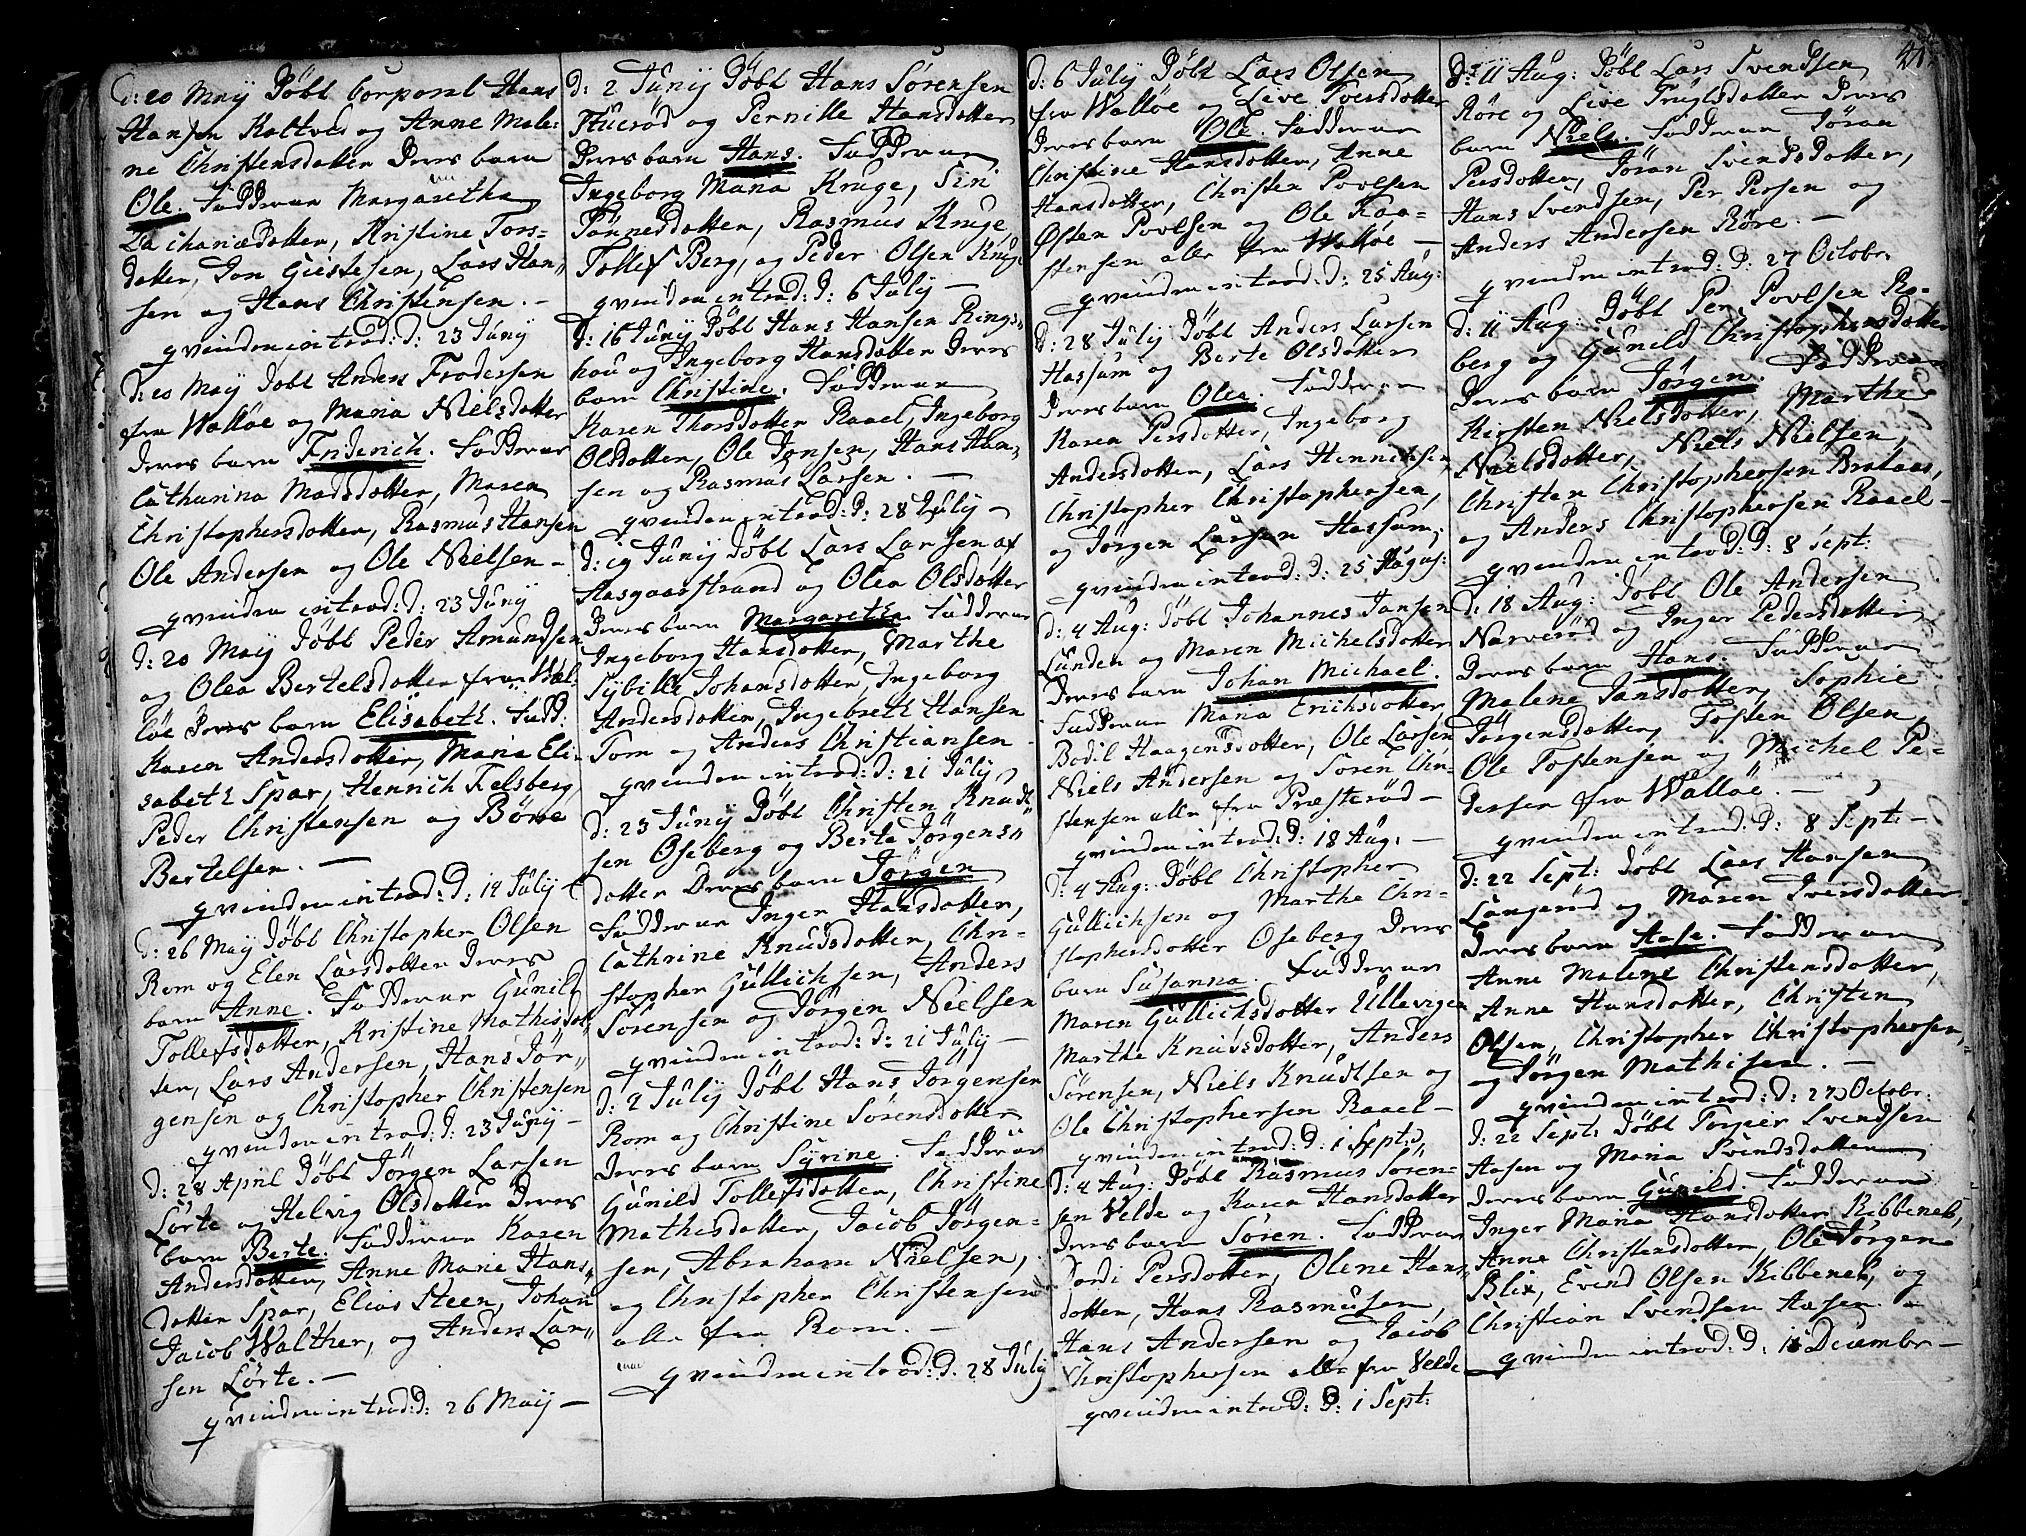 d: 20 Maÿ Döbt Corporal Hans
Hansen Kaltved og Anne Male-
ne Christensdotter Deres barn
Ole. Faddrene Margaretha
Zachariædotter, Kristine Tors-
dotter, Jon Giestesen, Lars Han-
sen og Hans Christensen. -
qvinden introd: d: 23 Junÿ
d: 20 Maÿ Döbt Anders Frodessen
fra Walløe og Maria Nielsdotter
deres barn Friderich. Faddrene
Catharina Madsdotter, Maren
Christophersdotter, Rasmus Hansen
Ole Andersen og Ole Nielsen -
qvinden introd: d: 23 Junÿ
d: 20 Maÿ Döbt Peder Amundsen
og Olea Bertelsdotter fra Wal-
löe Deres barn Elisabeth. Fadd:
Karen Andersdotter, Maria Eli-
sabeth Spar, Henrich Felsberg,
Peder Christensen og Börre
Bertelsen. -
qvinden introd: d: 14 Julÿ
d: 26 Maÿ Döbt Christopher Olsen
Rom og Elen Larsdotter Deres
barn Anne. Faddrene Gunild
Tollefsdotter, Kristine Mathisdot-
ter, Lars Andersen, Hans Jör-
gensen og Christopher Christensen
qvinden introd: d: 23 Junÿ -
d: 28 April Döbt Jörgen Larsen
Lörte og Helvig Olsdotter Deres
barn Berte. Faddrene Karen
Andersdotter, Anne Marie Hans-
dotter Spar, Elias Steen, Johan
Jacob Walther, og Anders Lar-
sen Lörte. -
qvinden introd: d: 26 Maÿ -
d: 2 Junÿ Döbt Hans Sörensen
Huerød og Pernille Hansdotter
Deres barn Hans. Faddrene
Ingeborg Maria Kruge, Siri
Tönnesdotter, Rasmus Kruge,
Tollef Berg, og Peder Olsen Krug.
qvinden introd: d: 6 Julÿ -
d: 16 Junÿ Döbt Hans Hansen Rings-
hou og Ingeborg Hansdotter Deres
barn Christine. Faddrene
Karen Thorsdotter Raael, Ingeborg
Olsdotter, Ole Jonsen, Hans Han-
sen og Rasmus Larsen. -
qvinden introd: d: 28 Julÿ -
d: 19 Junÿ Döbt Lars Larsen af
Aasgaarstrand og Olea Olsdotter
Deres barn Margarethe. Faddrene
Ingeborg Hansdotter, Marthe
Sÿbille Johansdotter, Ingeborg
Andersdotter, Ingebreth Hansen
Tom og Anders Christiansen -
qvinden introd: d: 21 Julÿ
d: 23 Junÿ Döbt Christen Knud-
sen Oseberg og Berte Jörgens-
dotter Deres barn Jörgen
Faddrene Inger Hansdotter,
Cathrine Knudsdotter, Chri-
stopher Gullichsen, Anders
Sörensen og Jörgen Nielsen
qvinden introd: d: 21 Julÿ -
d: 2 Julÿ Döbt Hans Jörgensen
Rom og Christine Sörensdotter
deres barn Sÿrine. Faddrene
Gunild Tollefsdotter, Christine
Mathisdotter, Jacob Jörgen-
sen, Abraham Nielsen,
og Christopher Christensen
alle fra Rom. -
qvinden introd: d. 28 Julÿ
d: 6 Julÿ Döbt Lars Olsen
fra Walløe og Live Iversdotter
deres barn Ole. Faddrene
Christine Hansdotter, Anne
Hansdotter, Christen Povlsen
Östen Povlsen og Ole Taa-
stensen alle fra Walløe -
qvinden introd: d: 25 Aug:
d: 28 Julÿ Döbt Anders Larsen
Hassum og Berte Olsdotter
deres barn Olea. Faddrene
Karen Persdotter, Ingeborg
Andersdotter, Lars Henrichsen,
Christopher Christophersen,
og Jörgen Larsen Hassum.
qvinden introd: d: 25 Augus:
d: 4 Aug: Döbt Johannes Jansen
Lunden og Maren Michelsdotter
Deres barn Johan Michael.
Faddrene Maria Erichsdotter
Bodil Haagensdotter, Ole Larsen
Niels Andersen og Soren Chri-
stensen alle fra Præsterød -
qvinden introd: d: 18 Aug: -
d: 4 Aug: Döbt Christopher
Gullichsen og Marthe Chri-
stophersdotter Oseberg Deres
barn Susanna. Faddrene
Maren Gullichsdotter Ullevigen
Marthe Knudsdotter, Anders
Sörensen, Niels Knudtsen og
Ole Christophersen Raael -
qvinden introd: d: 1 Sept:
d: 4 Aug: Döbt Rasmus Sören-
sen Velde og Karen Hansdotter
deres barn Sören. Faddrene
Jordi Persdotter, Olene Hans-
dotter, Hans Rasmusen,
Hans Andersen og Jacob
Christophersen alle fra Velde
qvinden introd: d: 1 Sept:
41.
d: 11 Aug: Döbt Lars Svendsen
Röre og Live Trulsdotter Deres
barn Niels. Faddrene Jöran
Persdotter, Jöran Svendsdotter,
Hans Svendsen, Per Persen og
Anders Andersen Röre. -
qvinden introd: d: 27 Octobr.
d: 11 Aug: Döbt Per Povlsen Ro-
berg og Gunild Christophersdotter
Deres barn Jörgen. Faddrene
Kirsten Nielsdotter, Marthe
Nielsdotter, Niels Nielsen,
Christen Christophersen Brataas,
og Anders Christophersen Raael -
qvinden introd: d: 8 Sept:
d: 18 Aug: Döbt Ole Andersen
Narverød og Inger Pedersdotter
Deres barn Hans. Faddrene
Malene Jansdotter, Sophie
Jörgensdotter, Tosten Olsen,
Ole Tostensen og Michel Pe-
dersen fra Walløe. -
qvinden introd: d: 8 Sept: -
d: 22 Sept: Döbt Lars Hansen
Langerød og Maren Iversdotter
Deres barn Aase. Faddrene
Anne Malene Christensdotter,
Anne Hansdotter, Christen
Olsen, Christopher Christophersen,
og Jörgen Mathisen. -
qvinden introd: d: 27 Octobr:
d: 22 Sept: Döbt Torgier Svendsen
Aasen og Maria Svendsdotter
deres barn Gunild. Faddrene
Inger Maria Hansdotter Kibbenek,
Anne Christensdotter, Ole Jörgens
Blix, Evend Olsen Kibbenek, og
Christian Svendsen Aasen -
qvinden introd: d. 11 Decembr -